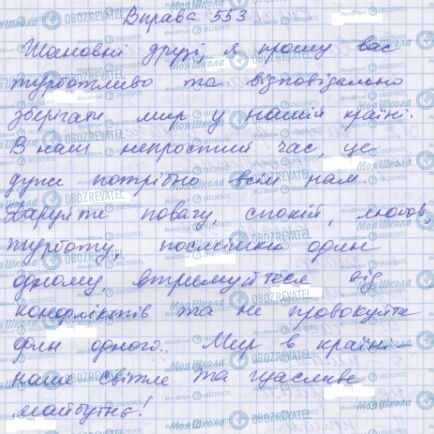 Вправа 553
Шановні друзі, я прошу вас
турботливо та відповідально
зберігати мир у нашій країні.
В наш непростий час, це
дуже потрібно всім нам.
Даруйте повагу, спокій, любов,
турботу, посмішки один
одному, втримуйтеся від
конфліктів та не провокуйте
один одного. Мир в країні –
наше світле та щасливе
майбутнє!